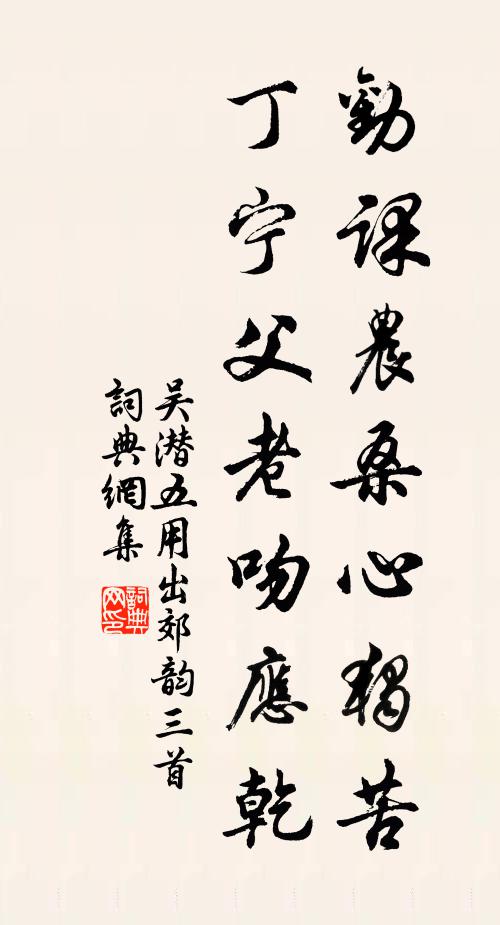 勸課農桑心獨苦
丁宁父老吻應乾
吴潜五用出郊韵三首
詞典網集
詞典
网印